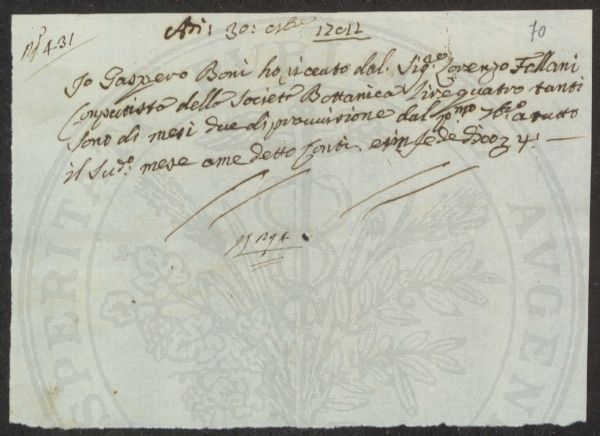 Adì: 30: 8bre 1742
70
N° 431
Jo Gaspero Boni ho riceuto dal Sigre Lorenzo Fallani
Computista della Società Bottanica lire quatro tanti
sono di mesi due di provvisione dal pmo 7bre a tutto
il Sudo mese a me detto Conti e in fede
4
PROSPERITATI AVGEN